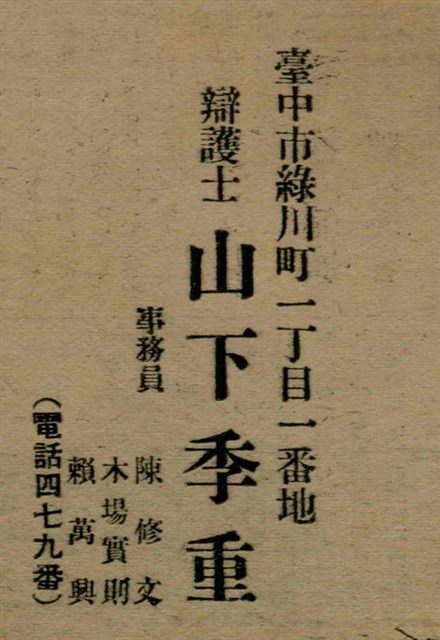 臺中市綠川町一丁目一番地
辯護士 山下季重
事務員 陳修文
木場實則
賴萬興
（電話四七九番）